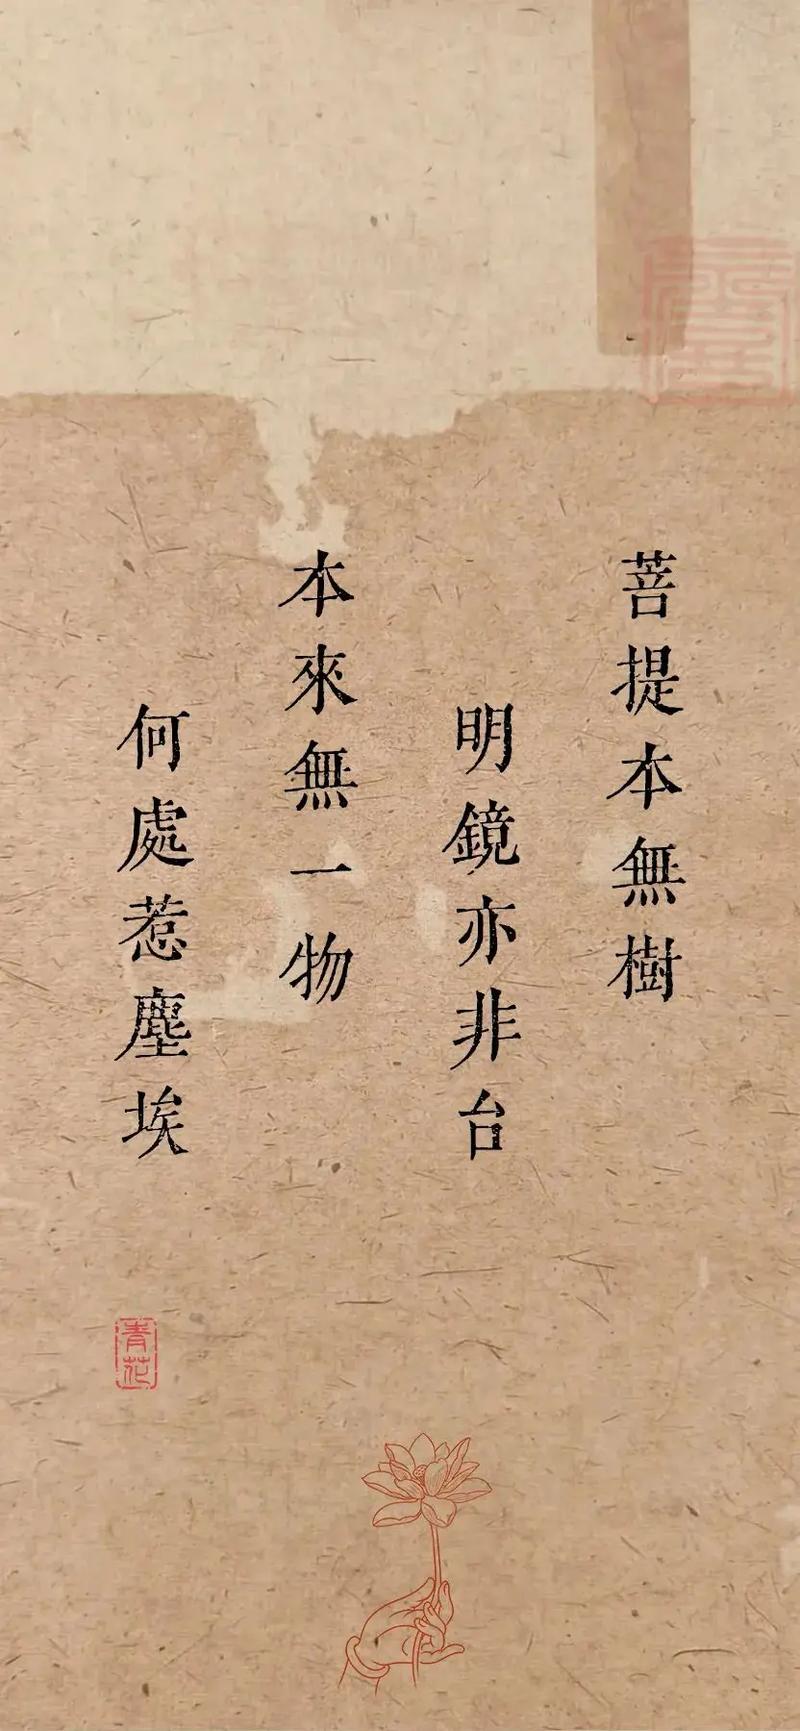 菩提本無樹
明鏡亦非台
本來無一物
何處惹塵埃
青花